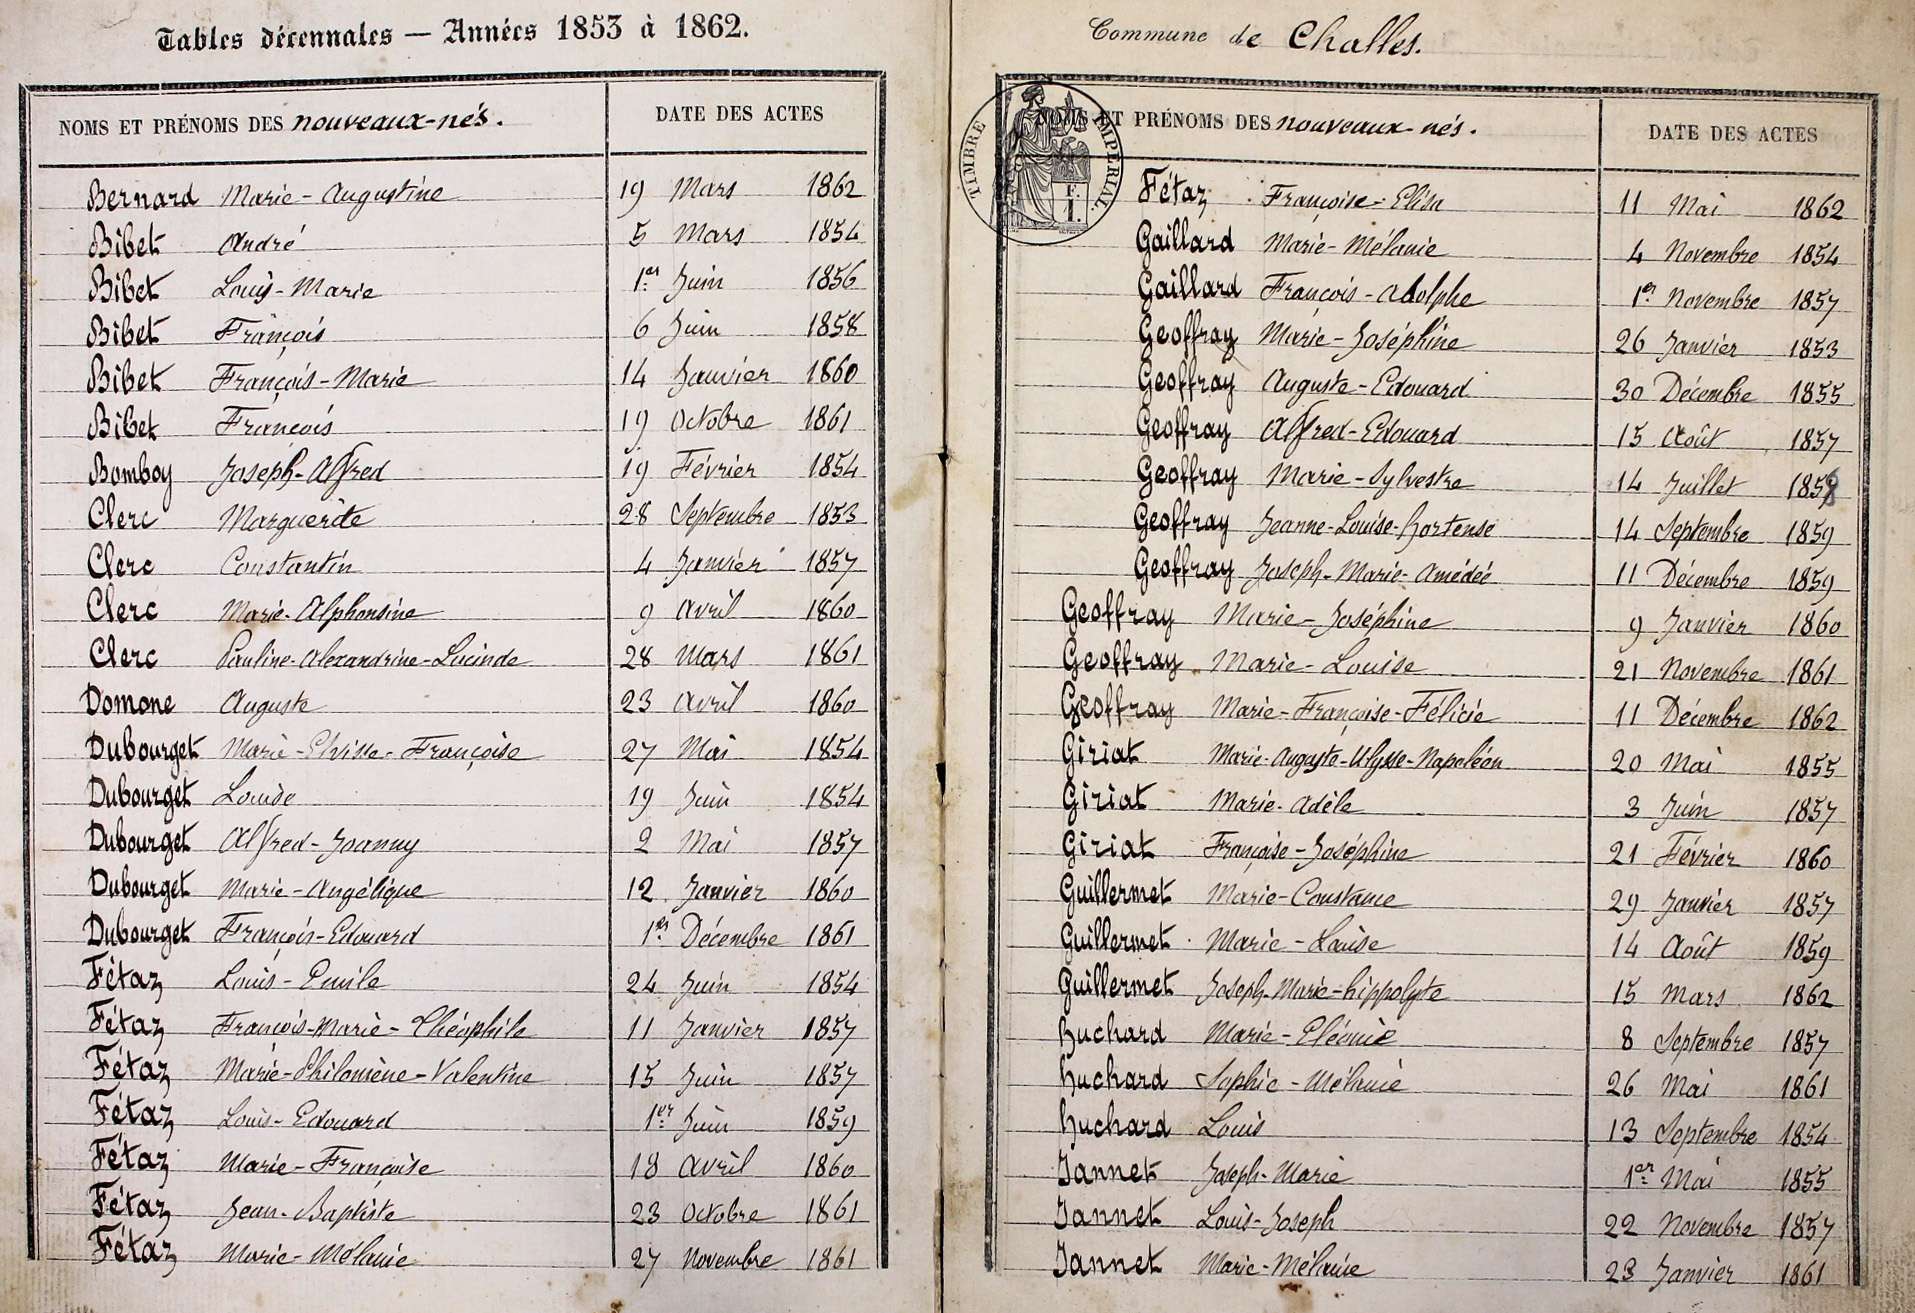 Tables décennales — Années 1853 à 1862.
NOMS ET PRÉNOMS DES nouveaux-nés. DATE DES ACTES
Bernard Marie-Augustine 19 Mars 1862
Bibet André 5 Mars 1854
Bibet Louis-Marie 1er Juin 1856
Bibet François 6 Juin 1858
Bibet François-Marie 14 Janvier 1860
Bibet François 19 Octobre 1861
Bomboy Joseph-Alfred 19 Février 1854
Clerc Marguerite 28 Septembre 1853
Clerc Constantin 4 Janvier 1857
Clerc Marie-Alphonsine 9 Avril 1860
Clerc Pauline-Alexandrine-Lucinde 28 Mars 1861
Domone Auguste 23 Avril 1860
Dubourget Marie-Françoise 27 Mai 1854
Dubourget Louise 19 Juin 1854
Dubourget Alfred-Joanny 2 Mai 1857
Dubourget Marie-Angélique 12 Janvier 1860
Dubourget François-Edouard 1er Décembre 1861
Fétaz Louis-Emile 24 Juin 1854
Fétaz François-Marie-Théophile 11 Janvier 1857
Fétaz Marie-Philomène-Valentine 15 Juin 1857
Fétaz Louis-Edouard 1er Juin 1859
Fétaz Marie-Françoise 18 Avril 1860
Fétaz Jean-Baptiste 23 Octobre 1861
Fétaz Marie-Mélanie 27 Novembre 1861
Commune de Challes.
TIMBRE IMPÉRIAL
F. 1.
NOMS ET PRÉNOMS DES nouveaux-nés. DATE DES ACTES
Fétaz Françoise-Elisa 11 Mai 1862
Gaillard Marie-Mélanie 4 Novembre 1854
Gaillard François-Adolphe 1er Novembre 1857
Geoffray Marie-Joséphine 26 Janvier 1853
Geoffray Auguste-Edouard 30 Décembre 1855
Geoffray Alfred-Edouard 15 Août 1857
Geoffray Marie-Sylvestre 14 Juillet
Geoffray Jeanne-Louise-hortense 14 Septembre 1859
Geoffray Joseph-Marie-Amédée 11 Décembre 1859
Geoffray Marie-Joséphine 9 Janvier 1860
Geoffray Marie-Louise 21 Novembre 1861
Geoffray Marie-Françoise-Félicie 11 Décembre 1862
Giriat Marie-Auguste-Ulysse-Napoléon 20 Mai 1855
Giriat Marie-Adèle 3 Juin 1857
Giriat Françoise-Joséphine 21 Février 1860
Guillermet Marie-Constance 29 Janvier 1857
Guillermet Marie-Louise 14 Août 1859
Guillermet Joseph-Marie-hippolyte 15 Mars 1862
huchard Marie-Eléonie 8 Septembre 1857
huchard Sophie-Mélanie 26 Mai 1861
huchard Louis 13 Septembre 1854
Jannet Joseph-Marie 1er Mai 1855
Jannet Louis-Joseph 22 Novembre 1857
Jannet Marie-Mélanie 23 Janvier 1861